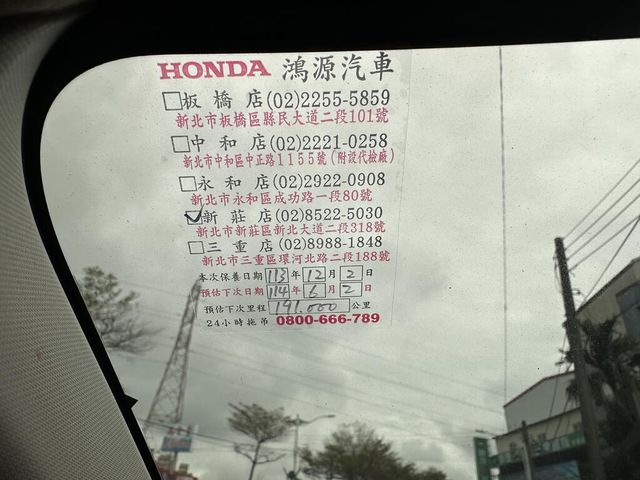 HONDA 鴻源汽車
板橋店(02)2255-5859
新北市板橋區縣民大道二段101號
中和店(02)2221-0258
新北市中和區中正路1155號(附設代檢廠)
永和店(02)2922-0908
新北市永和區成功路一段80號
新莊店(02)8522-5030
新北市新莊區新北大道二段318號
三重店(02)8988-1848
新北市三重區環河北路二段188號
本次保養日期 113 年 12 月 2 日
預估下次日期 114 年 6 月 2 日
預估下次里程 191.000 公里
24小時拖吊 0800-666-789